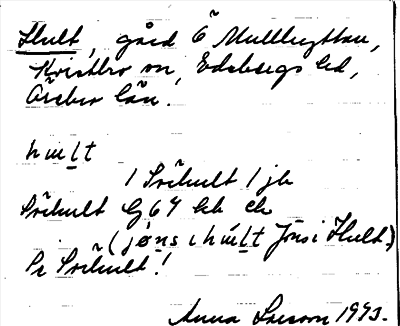 Hult, gård Ö Mullhyttan,
Kvistbro sn, Edsbergs hd,
Örebro län.
hult
1 Sörhult 1 jb
Sörhult G 64 hb
(jøns i hult Jöns i Hult)
Pr Sörhult!
Anna Larsson 1973.